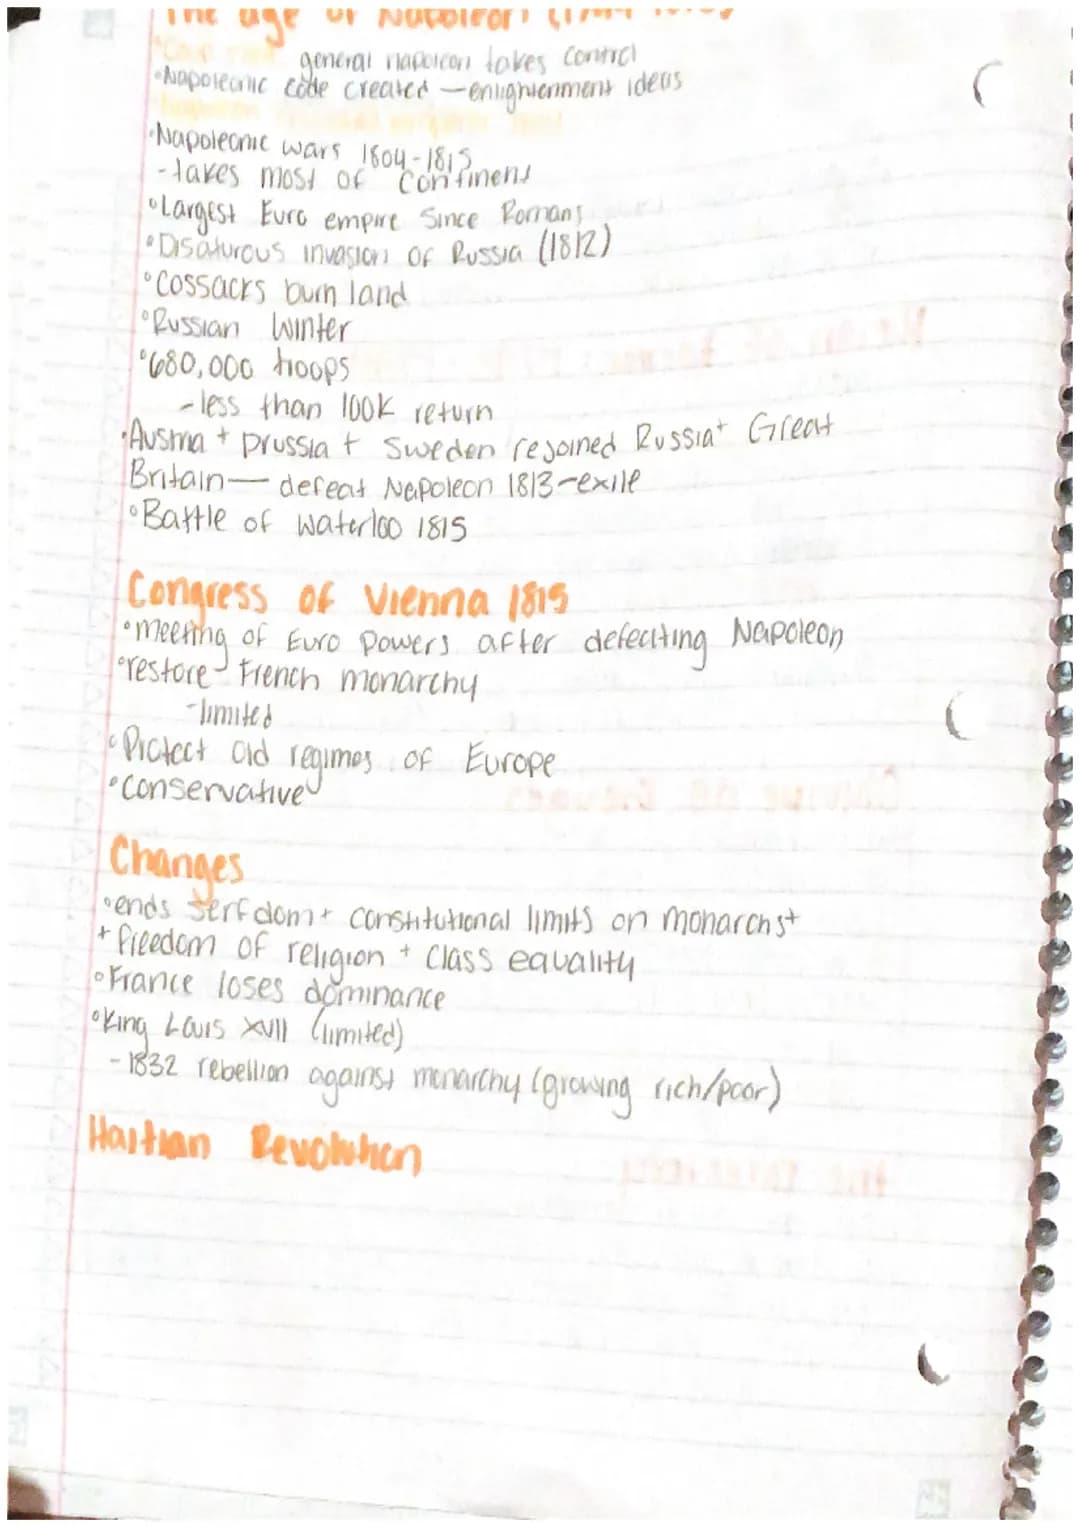 The age of Napoleon
general napoleon takes control
•Napoleonic code created — enlightenment ideas
•Napoleonic wars 1804-1815
-takes most of continent
•Largest Euro empire since Romans
•Disaturous invasion of Russia (1812)
•Cossacks burn land
•Russian Winter
•680,000 troops
-less than 100K return
•Austria + prussia + Sweden rejoined Russia + Great
Britain— defeat Napoleon 1813-exile
•Battle of Waterloo 1815
Congress of Vienna 1815
•meeting of Euro powers after defeating Napoleon
•restore French monarchy
-limited
•Protect old regimes of Europe
•Conservative
Changes
•ends serfdom + constitutional limits on monarchs +
+ freedom of religion + class equality
•France loses dominance
•King Louis XVII (limited)
-1832 rebellion against monarchy (growing rich/poor)
Haitian Revolution